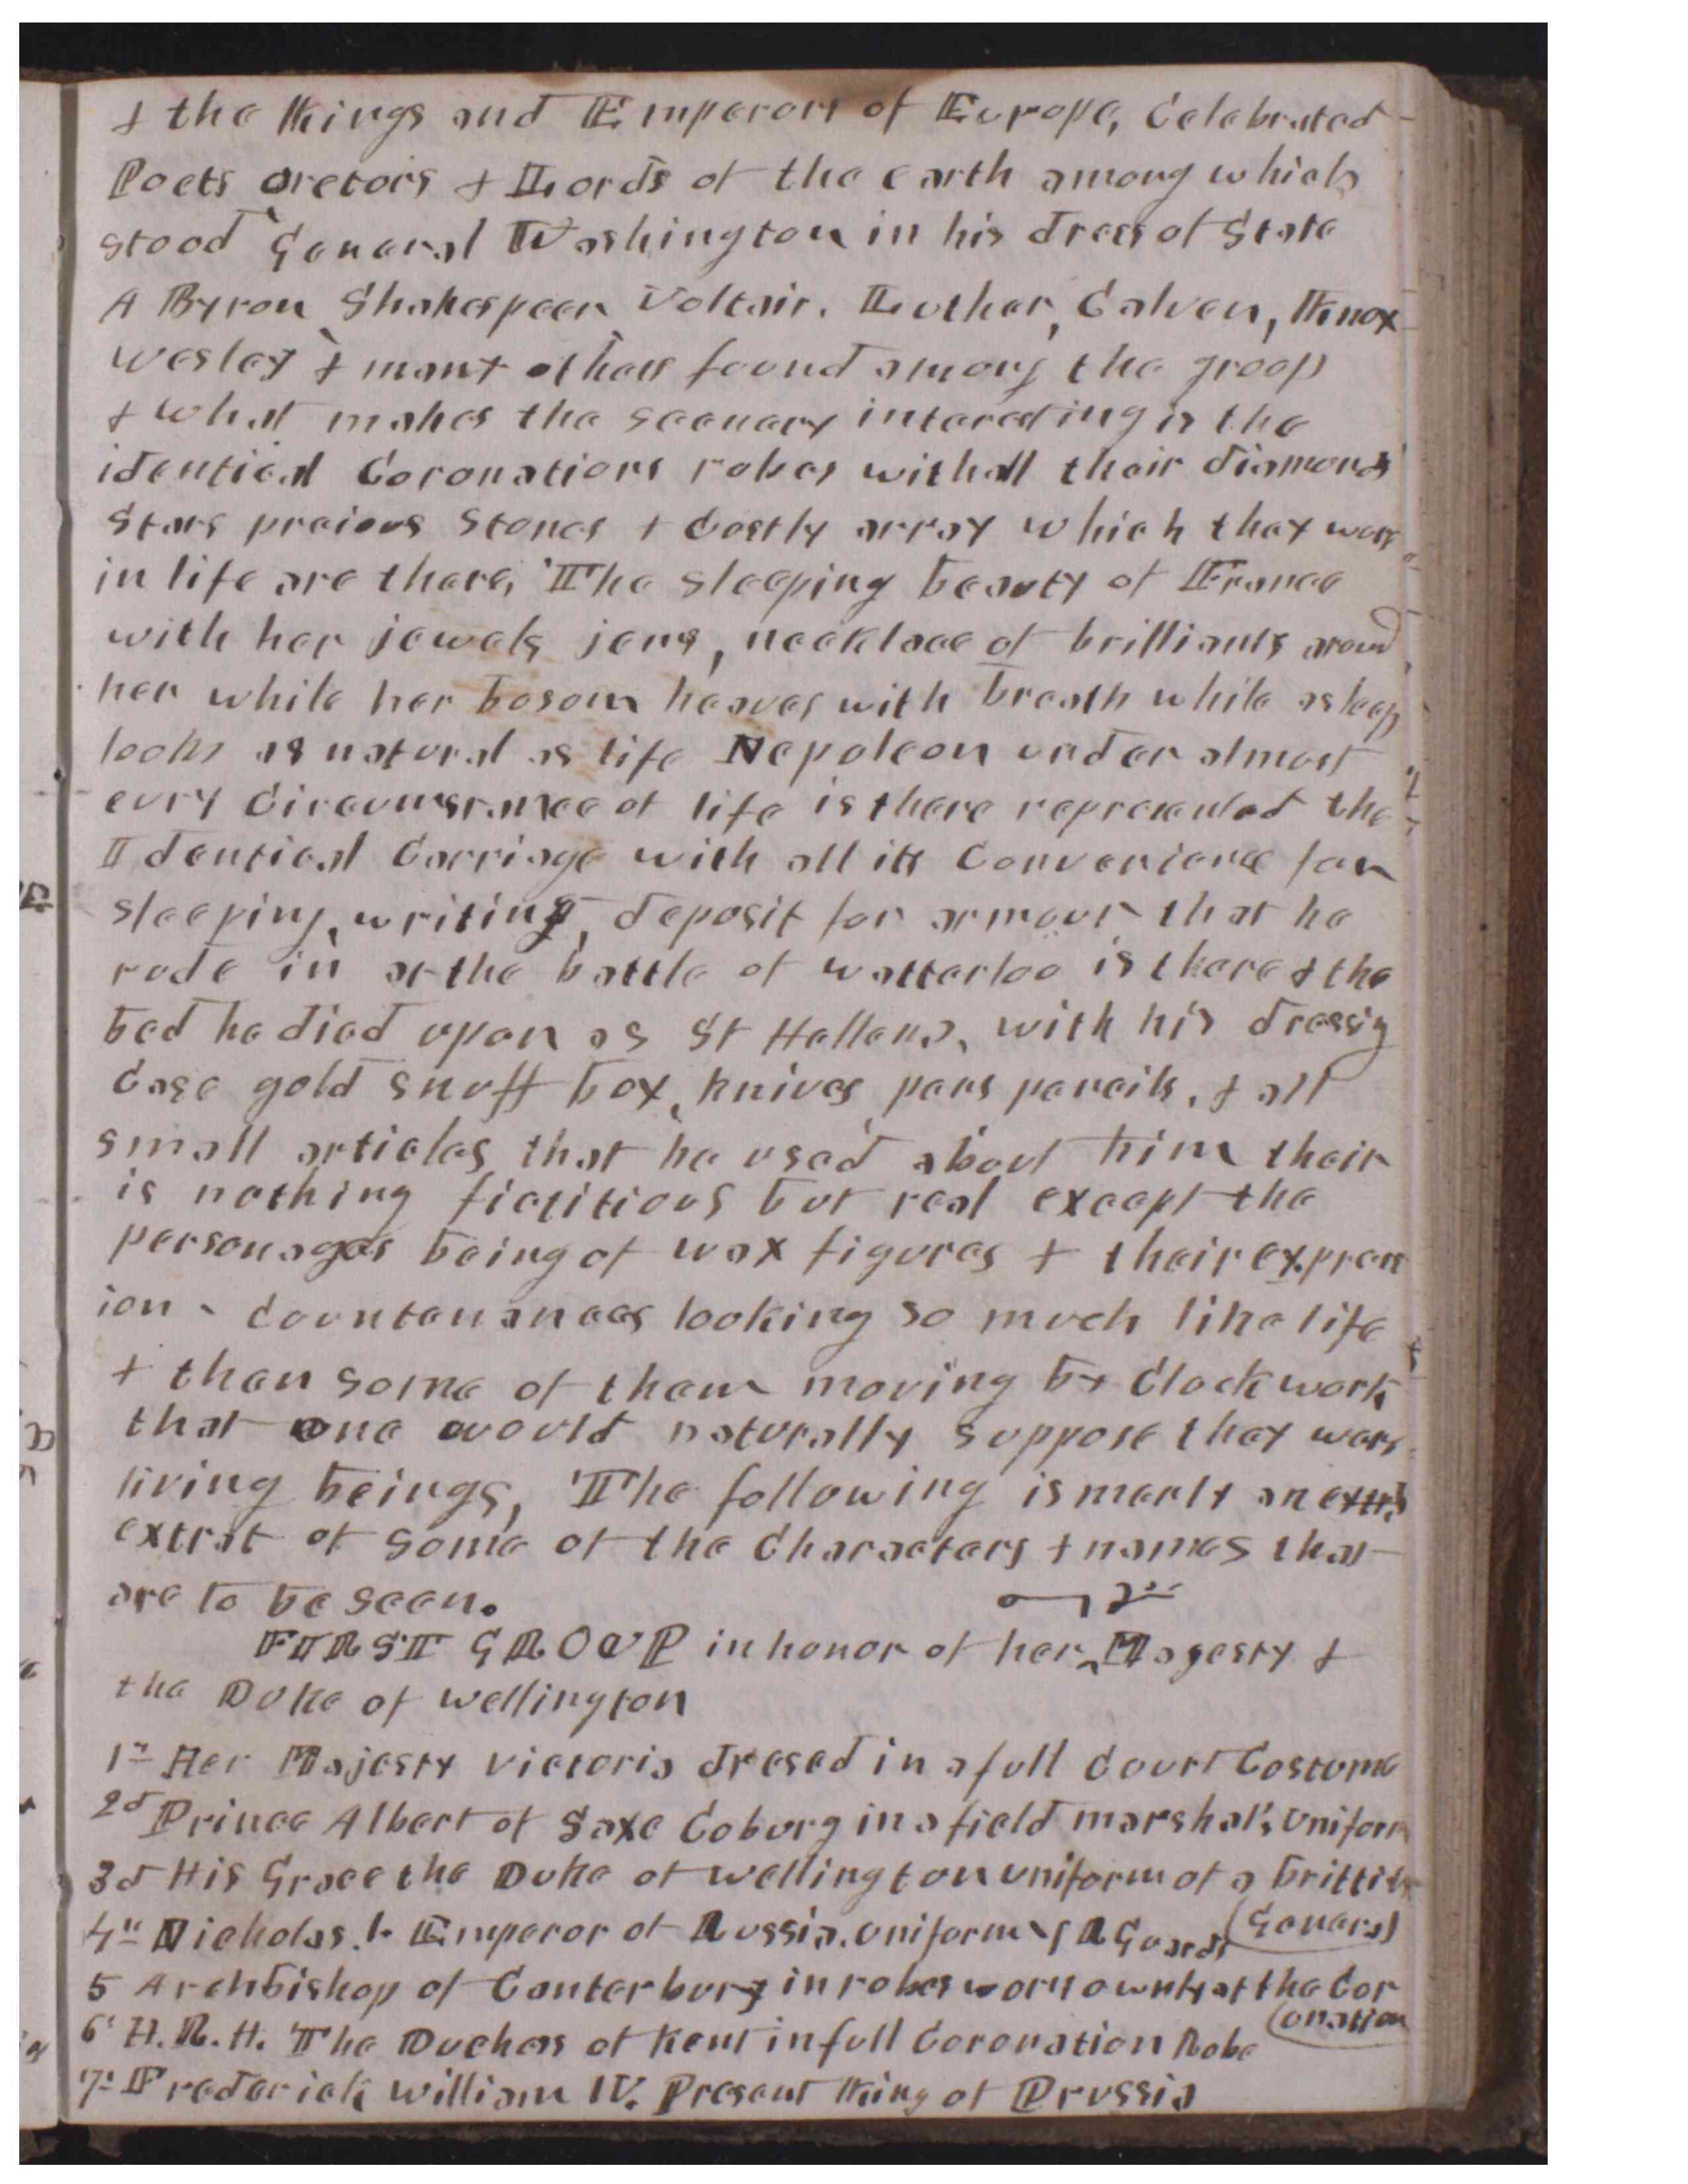 & the Kings and Emperors of Europe, Celebrated
Poets oretors & Lords of the earth among which
stood General Washington in his dress of State
A Byron Shakespeer Voltair. Luther, Calven, Knox
Wesley & many others found among the groop
& what makes the scenary interesting is the
identical Coronations robes withall their diamonds
Stars preious Stones & Costly array which they wore
in life are there, The sleeping beauty of France
with her jewels jems, necklace of brilliants around
her while her bosom heaves with breath while asleep
looks as natural as life Nepoleon under almost
evry Circumstance of life is there represented the
Identical Carriage with all its Convenience for
sleeping, writing, deposit for armour that he
rode in at the battle of watterloo is there & the
bed he died upon as St Hellena, with his dressig
Case gold snuff box, knives pens pencils, & all
small articles that he used about him their
is nothing fictitious but real except the
personages being of wax figures & their express
ion - Countenances looking so much like life
& then some of them moving by Clock work
that one would naturally suppose they were
living beings, The following is merly an extra
extrat of some of the Characters & names that
are to be seen.
FIRST GROUP in honor of her Magesty &
the Duke of wellington
1st Her Majesty Victoria dresed in a full Court Costume
2d Prince Albert of Saxe Coburg in a field marshal's Uniform
3d His Grace the Duke of Wellington uniform of a brittish
4th Nicholas. 1. Emperor of Russia. Uniform of R Guards (General)
5 Archbishop of Canterbury in robes worn ownly at the Cor
(onation
6 H. R. H. The Duchess of Kent in full Coronation Robe
7 Frederick William IV. Present King of Prussia